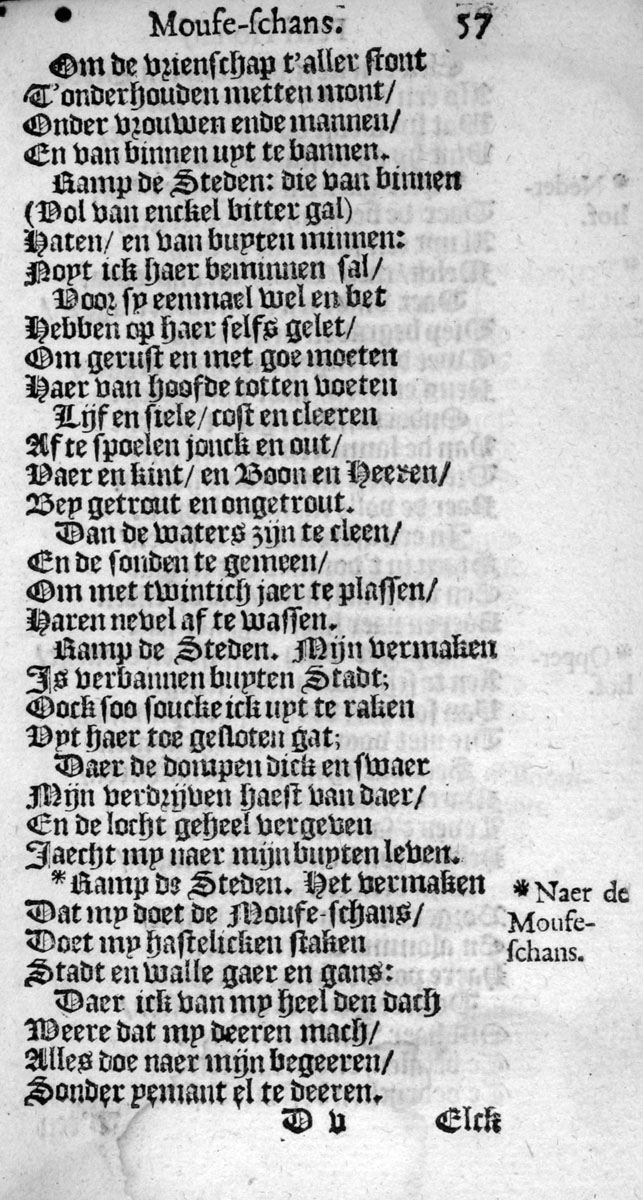 Mouſe-ſchans. 57
Om de vrienſchap t'aller ſtont
T'onderhouden metten mont/
Onder vrouwen ende mannen/
En van binnen uyt te bannen.
Ramp de Steden: die van binnen
(Vol van enckel bitter gal)
Haten/ en van buyten minnen:
Noyt ick haer beminnen sal/
Voor sy eenmael wel en bet
Hebben op haer selfs gelet/
Om geruſt en met goe moeten
Haer van hoofde totten voeten
Lijf en siele/ cost en cleeren
Af te spoelen jonck en out/
Vaer en kint/ en Boon en Heeren/
Bey getrout en ongetrout.
Dan de waters zijn te cleen/
En de sonden te gemeen/
Om met twintich jaer te plassen/
Haren nevel af te wassen.
Ramp de Steden. Mijn vermaken
Is verbannen buyten Stadt;
Oock soo soucke ick uyt te raken
Uyt haer toe gesloten gat;
Daer de dompen dick en swaer
Mijn verdrijven haest van daer/
En de locht geheel vergeven
Jaecht my naer mijn buyten leven.
*Ramp de Steden. Het vermaken
Dat my doet de Mouſe-ſchans/
Doet my hastelicken staken
Stadt en walle gaer en gans:
Daer ick van my heel den dach
Weere dat my deeren mach/
Alles doe naer mijn begeeren/
Sonder yemant el te deeren.
* Naer de
Mouſe-
ſchans.
D v Elck